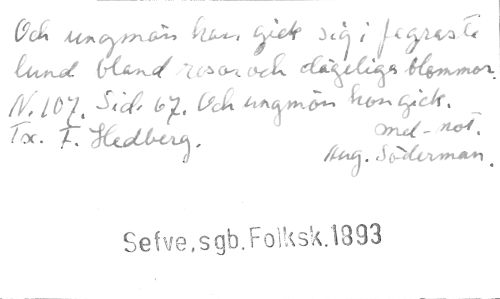 Och ungmön hon gick sig i fagraste
lund bland rosor och dägeliga blommor.
N. 107. Sid. 67. Och ungmön hon gick.
med-not.
Tx. F. Hedberg.
Aug. Söderman.
Sefve, sgb. Folksk. 1893